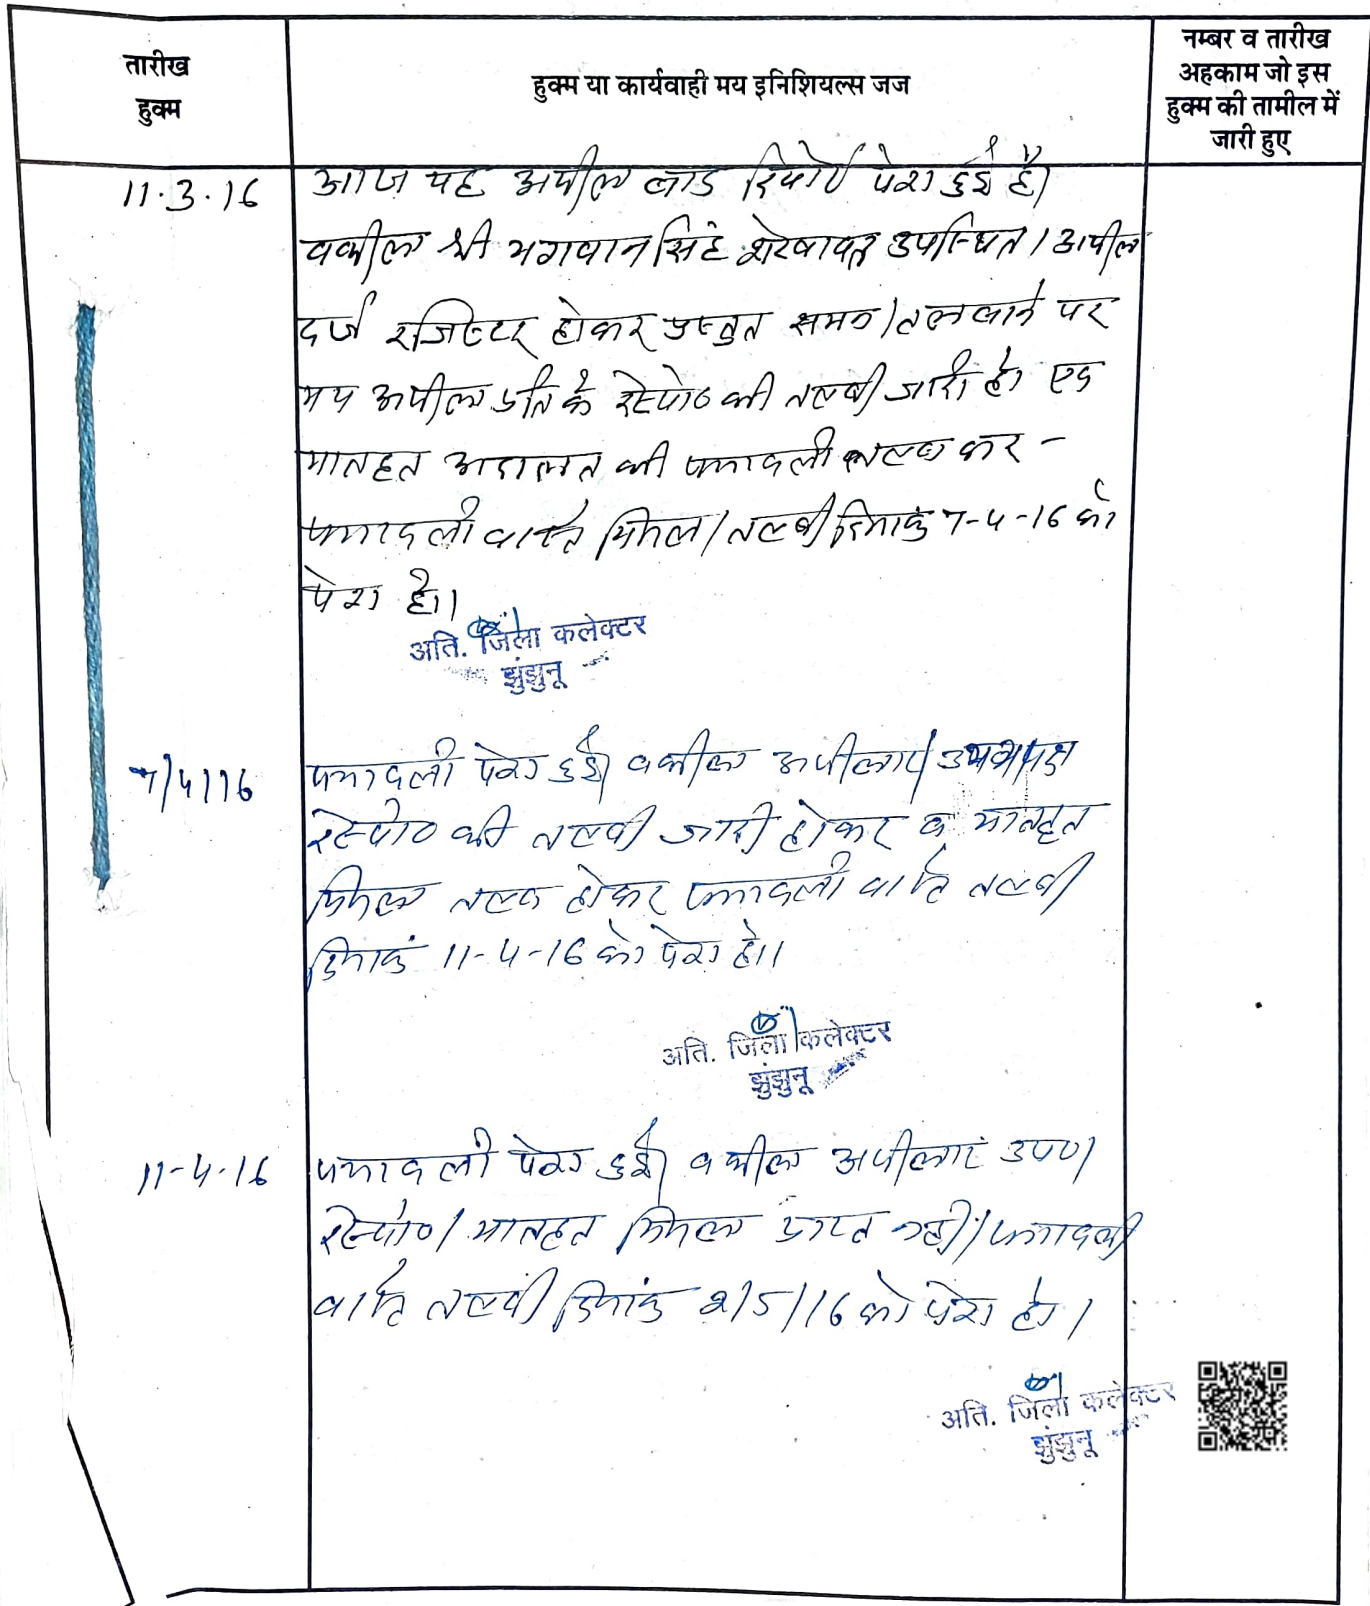 तारीख
हुक्म
हुक्म या कार्यवाही मय इनिशियल्स जज
नम्बर व तारीख
अहकाम जो इस
हुक्म की तामील में
जारी हुए
11.3.16
आज यह अपील बाद रिपोर्ट पेश हुई है।
वकील श्री भगवान सिंह शेखावत उपस्थित। अपील
दर्ज रजिस्टर होकर प्रस्तुत समन / तलबाने पर
मय अपील प्रति के रेस्पो० की तलबी जारी हो। एवं
मातहत अदालत की पत्रावली तलब कर -
पत्रावली वास्ते मिसल / तलबी दिनांक 7-4-16 को
पेश हो।
अति. जिला कलेक्टर
झुंझुनू
7/4/16
पत्रावली पेश हुई। वकील अपीलांट
रेस्पो० की तलबी जारी होकर व मातहत
मिसल तलब होकर पत्रावली वास्ते तलबी
दिनांक 11-4-16 को पेश हो।
अति. जिला कलेक्टर
झुंझुनू
11-4-16
पत्रावली पेश हुई। वकील अपीलांट उप०।
रेस्पो० / मातहत मिसल प्राप्त नहीं। पत्रावली
वास्ते तलबी दिनांक 2/5/16 को पेश हो।
अति. जिला कलेक्टर
झुंझुनू